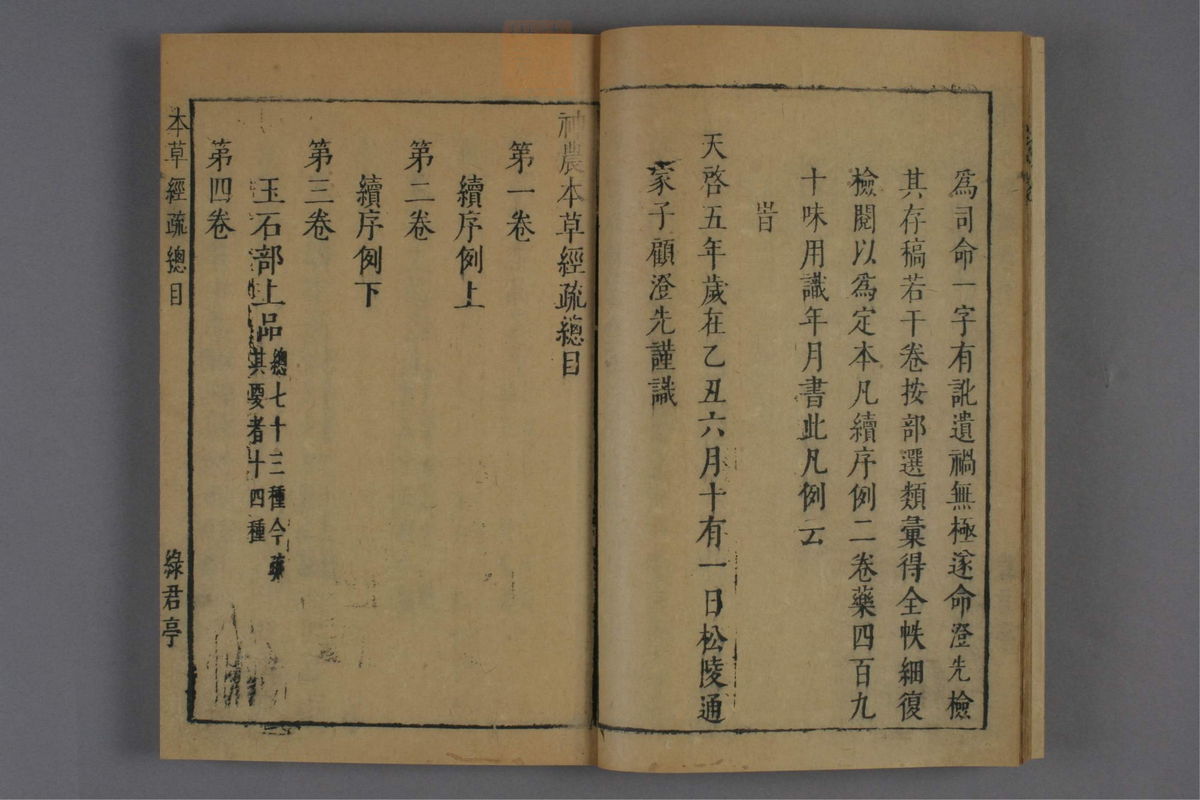 為司命一字有訛遺禍無極遂命澄先檢
其存稿若干卷按部選類彙得全帙細復
檢閱以為定本凡續序例二卷藥四百九
十味用識年月書此凡例云
旹
天啓五年歲在乙丑六月十有一日松陵通
家子顧澄先謹識
神農本草經疏總目
第一卷
續序例上
第二卷
續序例下
第三卷
玉石部上品
總七十三種今疏
其要者十四種
第四卷
本草經疏總目
綠君亭